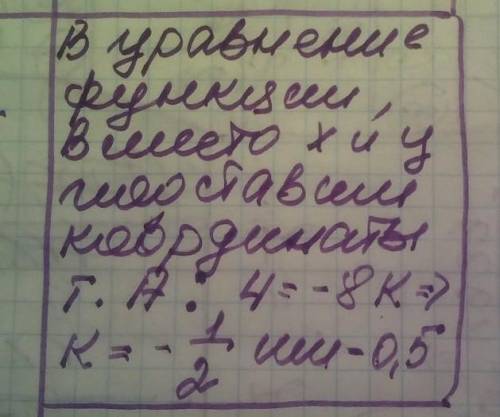 В уравнение
функции,
вместо х и у
подставим
координаты
т. А: 4=-8К=>
К=-1/2 или-0,5